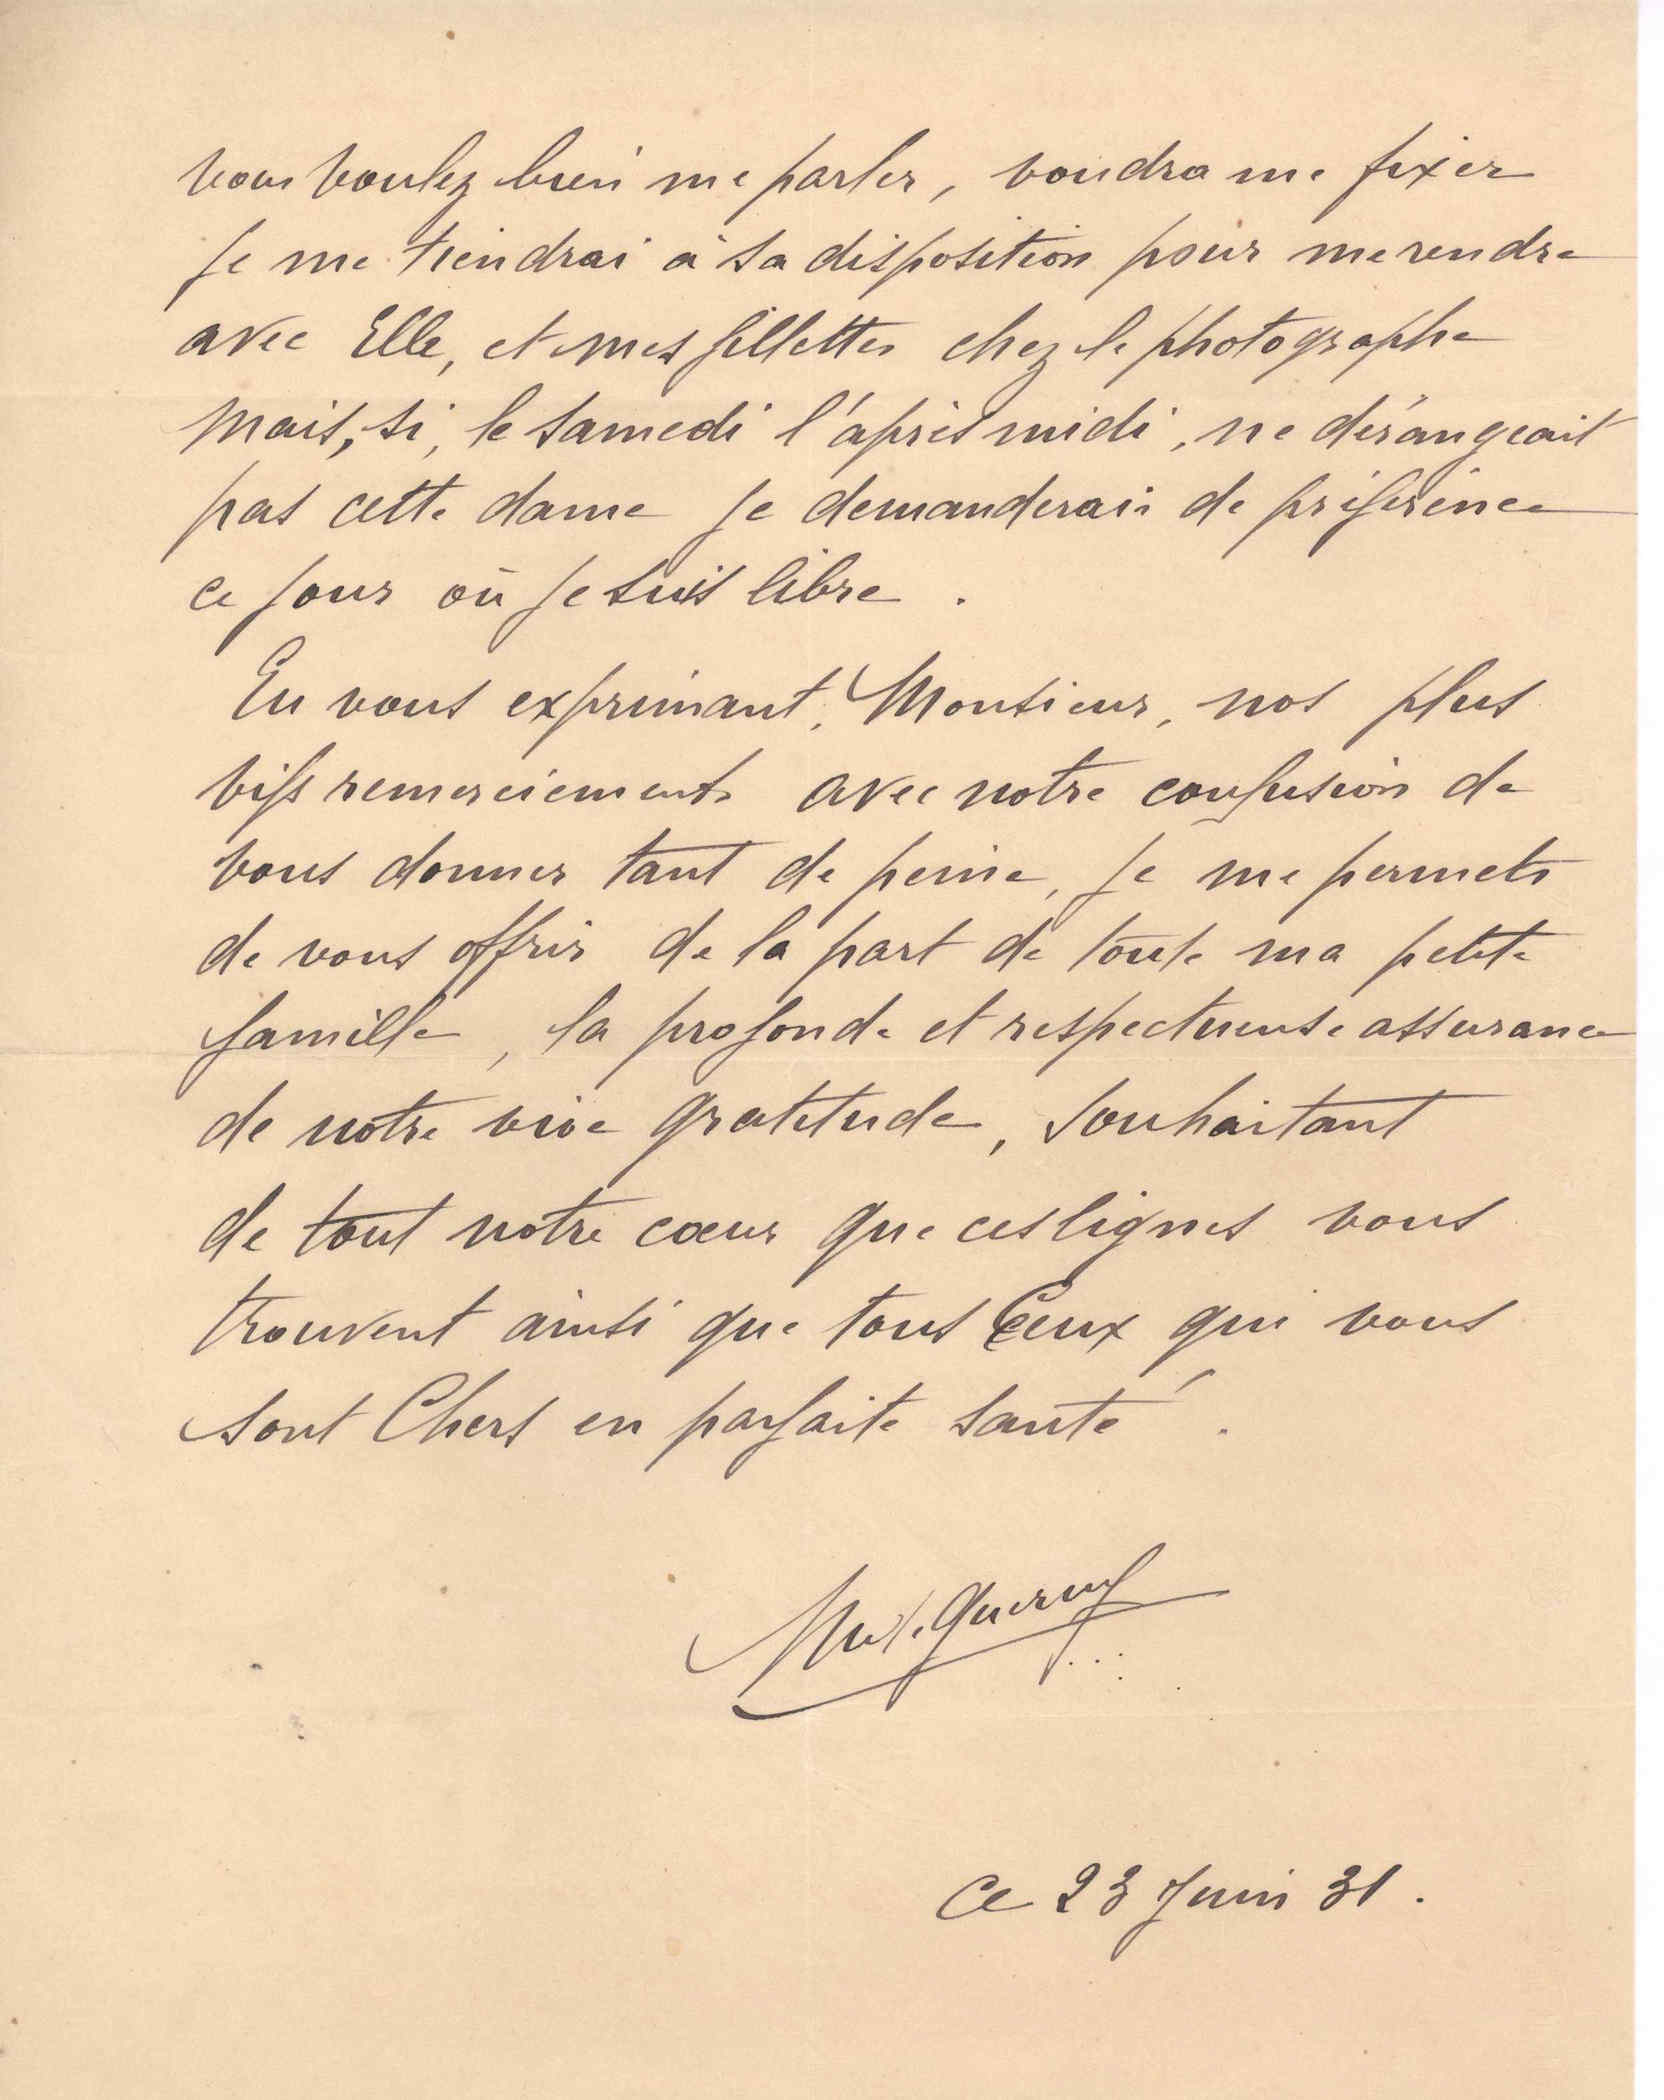 vous voulez bien me parler, voudra me fixer
je me tiendrai à sa disposition pour me rendre
avec Elle, et mes fillettes chez le photographe
mais, si, le samedi l'après midi, ne dérangeait
pas cette dame je demanderais de préférence
ce jour où je suis libre.
En vous exprimant, Monsieur, nos plus
vifs remerciements avec notre confusion de
vous donner tant de peine, je me permets
de vous offrir de la part de toute ma petite
famille, la profonde et respectueuse assurance
de notre vive gratitude, souhaitant
de tout notre cœur que ces lignes vous
trouvent ainsi que tous Ceux qui vous
sont Chers en parfaite santé.
ce 23 Juin 31.